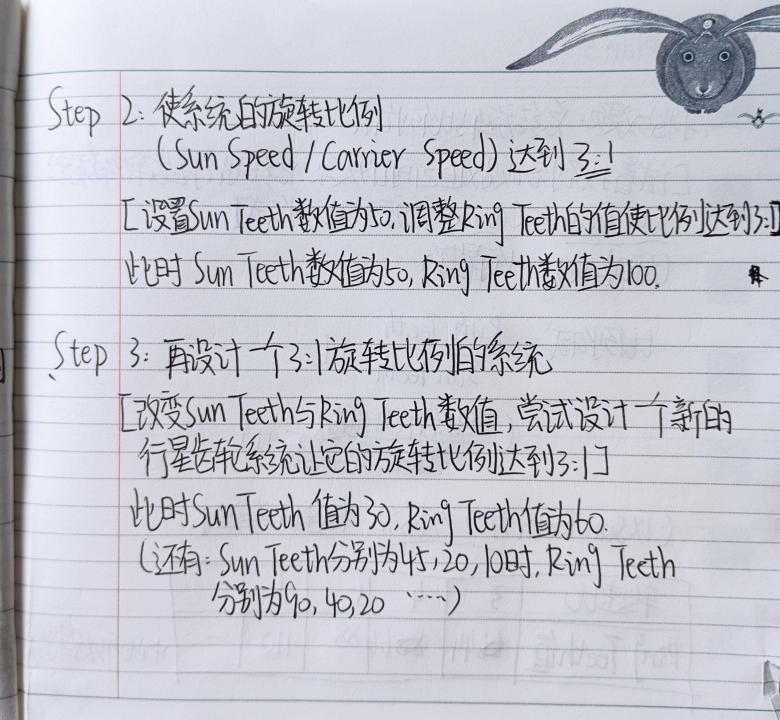 Step 2: 使系统的旋转比例
(Sun Speed / Carrier Speed) 达到 3:1
[设置Sun Teeth数值为50, 调整Ring Teeth的值使比例达到3:1]
此时 Sun Teeth数值为50, Ring Teeth数值为100.
Step 3: 再设计一个3:1旋转比例的系统
[改变Sun Teeth与Ring Teeth数值, 尝试设计一个新的
行星齿轮系统让它的旋转比例达到3:1]
此时Sun Teeth 值为30, Ring Teeth值为60.
(还有: Sun Teeth分别为45, 20, 10时, Ring Teeth
分别为90, 40, 20 ……)